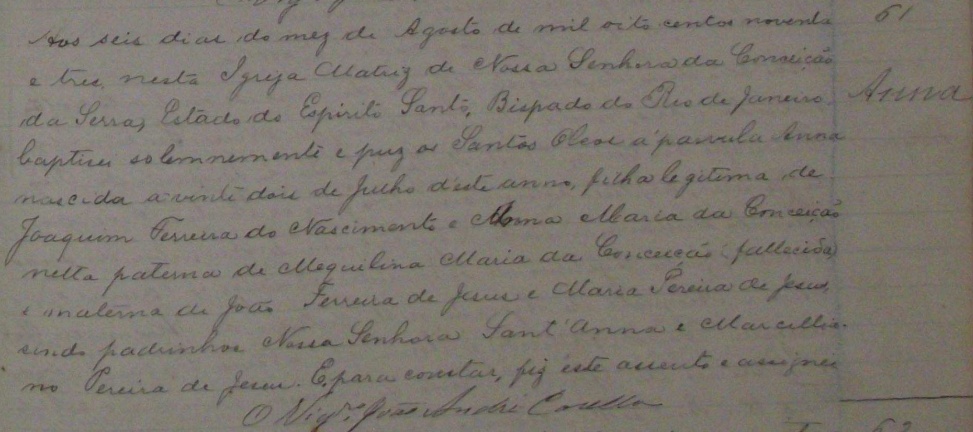 61
Aos seis dias do mez de Agosto de mil oito centos noventa
e tres, nesta Igreja Matriz de Nossa Senhora da Conceição
da Serra, Estado do Espirito Santo, Bispado do Rio de Janeiro,
Anna
baptisei solemnemente e puz os Santos Oleos á parvula Anna
nascida a vinte dois de Julho d'este anno, filha legitima de
Joaquim Ferreira do Nascimento e Anna Maria da Conceição
netta paterna de Mequilina Maria da Conceicão (fallecida)
e materna de João Ferreira de Jesus e Maria Pereira de Jesus,
sendo padrinhos Nossa Senhora Sant'Anna e Marcelli-
no Pereira de Jesus. E, para constar, fiz este assento e assignei
O Vigr.º João André
62